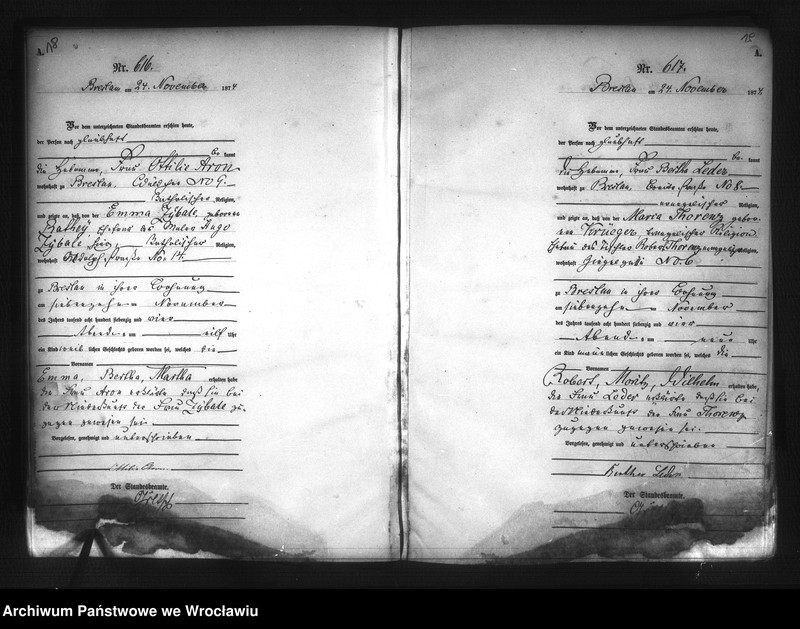 A.
18
Nr. 616.
Breslau am 24. November 1874
Vor dem unterzeichneten Standesbeamten erschien heute,
der Person nach
be kannt
die Hebamme, Frau Ottilie Aron
wohnhaft zu Breslau, No 9.
Katholischer Religion,
und zeigte an, daß von der Emma Zybale geborene
Ehefrau des Malers Hugo
Zybale hier, Katholischer Religion
wohnhaft Adolphstraße No. 14.
zu Breslau in ihrer Wohnung
am siebenzehnten November
des Jahres tausend acht hundert siebenzig und vier
Abends um eilf Uhr
ein Kind weib lichen Geschlechts geboren worden sei, welches die
Vornamen
Emma, Bertha, Martha erhalten habe
Die Frau Aron erklärte daß sie bei
der Niederkunft der Frau Zybale zu-
gegen gewesen sei
Vorgelesen, genehmigt und unterschrieben
Ottilie Aron
Der Standesbeamte.
19
A.
Nr. 617.
Breslau am 24. November 1874
Vor dem unterzeichneten Standesbeamten erschien heute,
der Person nach
be kannt
die Hebamme, Frau Bertha Leder
wohnhaft zu Breslau, Breitestraße No 8.
evangelischer Religion,
und zeigte an, daß von der Maria Thorenz gebor-
ene Krueger, evangelischer Religion
Ehefrau des Robert Thorenz
wohnhaft No. 6
zu Breslau in ihrer Wohnung
am siebenzehnten November
des Jahres tausend acht hundert siebenzig und vier
Abends um neun Uhr
ein Kind männ lichen Geschlechts geboren worden sei, welches die
Vornamen
Robert, Moritz, Wilhelm erhalten habe,
die Frau Leder erklärte daß sie bei
der Niederkunft der Frau Thorenz
zugegen gewesen sei.
Vorgelesen, genehmigt und unterschrieben
Bertha Leder
Der Standesbeamte.
Archiwum Państwowe we Wrocławiu